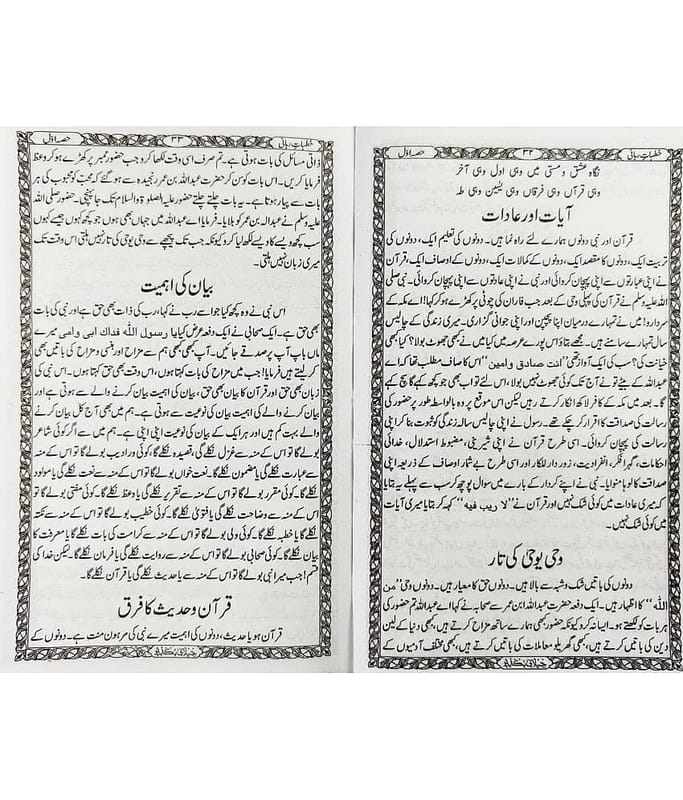 خطباتِ ربانی ۳۲ حصہ اوّل
نگاہ عشق و مستی میں وہی اول وہی آخر
وہی قرآں وہی فرقاں وہی یٰسین وہی طہٰ
آیات اور عادات
قرآن اور نبی دونوں ہمارے لئے راہ نما ہیں۔ دونوں کی تعلیم ایک، دونوں کی
تربیت ایک، دونوں کا مقصد ایک، دونوں کے کمالات ایک، دونوں کے اوصاف ایک، قرآن
نے اپنی عبارتوں سے اپنی پہچان کروائی اور نبی نے اپنی عادتوں سے اپنی پہچان کروائی۔ نبی صلی
اللہ علیہ وسلم نے قرآن کی پہلی وحی کے بعد جب فاران کی چوٹی پر کھڑے ہو کر کہا! اے مکہ کے
سردارو! میں نے تمہارے درمیان اپنا بچپن اور اپنی جوانی گزاری۔ میری زندگی کے چالیس
سال تمہارے سامنے ہیں۔ مجھے بتاؤ اس پورے عرصہ میں کیا میں نے کبھی جھوٹ بولا؟ کیا کبھی
خیانت کی؟ سب کی ایک آواز تھی ”انت صادق وامین“ اس کا صاف مطلب تھا کہ اے
عبداللہ کے بیٹے تو نے آج تک کوئی جھوٹ نہیں بولا، اس لئے تو اب بھی جو کچھ کہے گا سچ کہے
گا۔ بعد میں مکہ کے کافر لاکھ انکار کرتے رہیں لیکن اس موقع پر وہ بالواسطہ طور پر حضور کی
کی صداقت کا اقرار کر چکے تھے۔ رسول نے اپنی چالیس سالہ زندگی کو ثبوت بنا کر اپنی
رسالت کی پہچان کروائی۔ اسی طرح قرآن نے اپنی شیرینی، مضبوط استدلال، خدائی
احکامات، گہرا فکر، انفرادیت، زور دار للکار اور اسی طرح بے شمار اوصاف کے ذریعہ اپنی
صداقت کا لوہا منوایا۔ نبی نے اپنے کردار کے بارے میں سوال پوچھ کر سب سے پہلے یہ بتایا
کہ میری عادات میں کوئی شک نہیں اور قرآن نے ”لا ریب فیہ“ کہہ کر بتایا میری آیات
میں کوئی شک نہیں۔
وحی یوحیٰ کی تار
دونوں کی باتیں شک و شبہ سے بالا ہیں۔ دونوں حق کا معیار ہیں۔ دونوں وحی ”من
اللہ“ کا اظہار ہیں۔ ایک دفعہ حضرت عبداللہ ابن عمر سے صحابہ نے کہا اے عبداللہ تم حضور کی
ہر بات کو لکھتے ہو۔ ایسا نہ کرو کیونکہ حضور کبھی ہمارے ساتھ مزاح کرتے ہیں، کبھی دنیا کے لین
دین کی باتیں کرتے ہیں، کبھی گھریلو معاملات کی باتیں کرتے ہیں، کبھی مختلف آدمیوں کے
خطباتِ ربانی ۳۳ حصہ اوّل
ذاتی مسائل کی بات ہوتی ہے۔ تم صرف اسی وقت لکھا کرو جب حضور ممبر پر کھڑے ہو کر وعظ
فرمایا کریں۔ اس بات کو سن کر حضرت عبداللہ بن عمر رنجیدہ سے ہو گئے کہ محبّ کو محبوب کی ہر
بات سے پیار ہوتا ہے۔ یہ بات چلتے چلتے حضور علیہ الصلوٰۃ والسلام تک جا پہنچی۔ حضور صلی اللہ
علیہ وسلم نے عبداللہ بن عمر کو بلایا۔ فرمایا اے عبداللہ میں جہاں بھی ہوں جو کچھ کہوں جیسے کہوں
سب کچھ ویسے کا ویسے لکھ لیا کرو کیونکہ۔ جب تک پیچھے سے وحی یوحیٰ کی تار نہیں ہلتی اس وقت تک
میری زبان نہیں ہلتی۔
بیان کی اہمیت
اس نبی نے وہ کچھ کہا جو اسے رب نے کہا، رب کی ذات بھی حق ہے اور نبی کی بات
بھی حق ہے۔ ایک صحابی نے ایک دفعہ عرض کیا یا رسول اللہ فداک ابی وامی میرے
ماں باپ آپ پر صدقے جائیں۔ آپ کبھی کبھی ہم سے مزاح اور ہنسی و مزاح کی باتیں بھی
کر لیتے ہیں فرمایا! جب میں مزاح کی بات کہتا ہوں، اس وقت بھی حق کہتا ہوں۔ اس نبی کی
زبان بھی حق اور قرآن کا بیان بھی حق، بیان کی اہمیت بیان کرنے والے سے ہوتی ہے اور
بیان کرنے والے کی اہمیت بیان کی نوعیت سے ہوتی ہے۔ ہم میں بھی آج کل بیان کرنے
والے بہت کم ہیں اور ہر ایک کے بیان کی نوعیت اپنی اپنی ہے۔ ہم میں سے اگر کوئی شاعر
بولے گا تو اس کے منہ سے غزل نکلے گی، قصیدہ نکلے گا۔ کوئی ادیب بولے گا تو اس کے منہ
سے عبارت نکلے گی یا مضمون نکلے گا۔ نعت خواں بولے گا تو اس کے منہ سے نعت نکلے گی یا مولود
نکلے گا۔ کوئی مقرر بولے گا تو اس کے منہ سے تقریر نکلے گی یا وعظ نکلے گا۔ کوئی مفتی بولے گا تو
اس کے منہ سے وضاحت نکلے گی یا فتویٰ نکلے گا۔ کوئی خطیب بولے گا تو اس کے منہ سے نکتہ
نکلے گا یا خطبہ نکلے گا۔ کوئی ولی بولے گا تو اس کے منہ سے کرامت کی بات نکلے گی یا معرفت کا
بیان نکلے گا۔ کوئی صحابی بولے گا تو اس کے منہ سے روایت نکلے گی یا فرمان نکلے گا۔ لیکن خدا کی
قسم! جب میرا نبی بولے گا تو اس کے منہ سے یا حدیث نکلے گی یا قرآن نکلے گا۔
قرآن و حدیث کا فرق
قرآن ہو یا حدیث، دونوں کی اہمیت میرے نبی کی مرہون منت ہے۔ دونوں کے